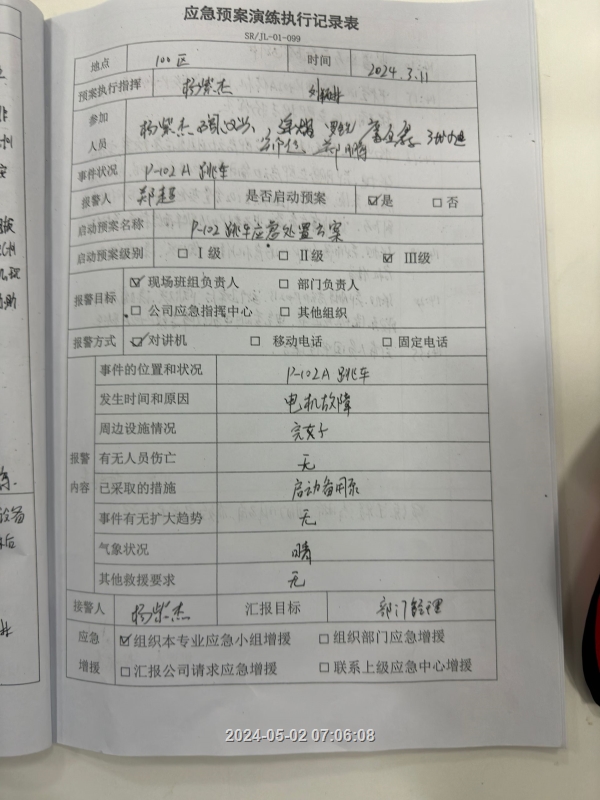 应急预案演练执行记录表
SR/JL-01-099
地点 100区 时间 2024.3.11
预案执行指挥 杨紫杰
参加人员 杨紫杰 郑鹏
事件状况 P-102A 跳车
报警人 郑超 是否启动预案 ☑是 □否
启动预案名称 P-102跳车应急处置方案
启动预案级别 □Ⅰ级 □Ⅱ级 ☑Ⅲ级
报警目标 ☑现场班组负责人 □部门负责人
□公司应急指挥中心 □其他组织
报警方式 ☑对讲机 □移动电话 □固定电话
报警内容 事件的位置和状况 P-102A 跳车
发生时间和原因 电机故障
周边设施情况 完好
有无人员伤亡 无
已采取的措施 启动备用泵
事件有无扩大趋势 无
气象状况 晴
其他救援要求 无
接警人 杨紫杰 汇报目标 部门经理
应急增援 ☑组织本专业应急小组增援 □组织部门应急增援
□汇报公司请求应急增援 □联系上级应急中心增援
2024-05-02 07:06:08